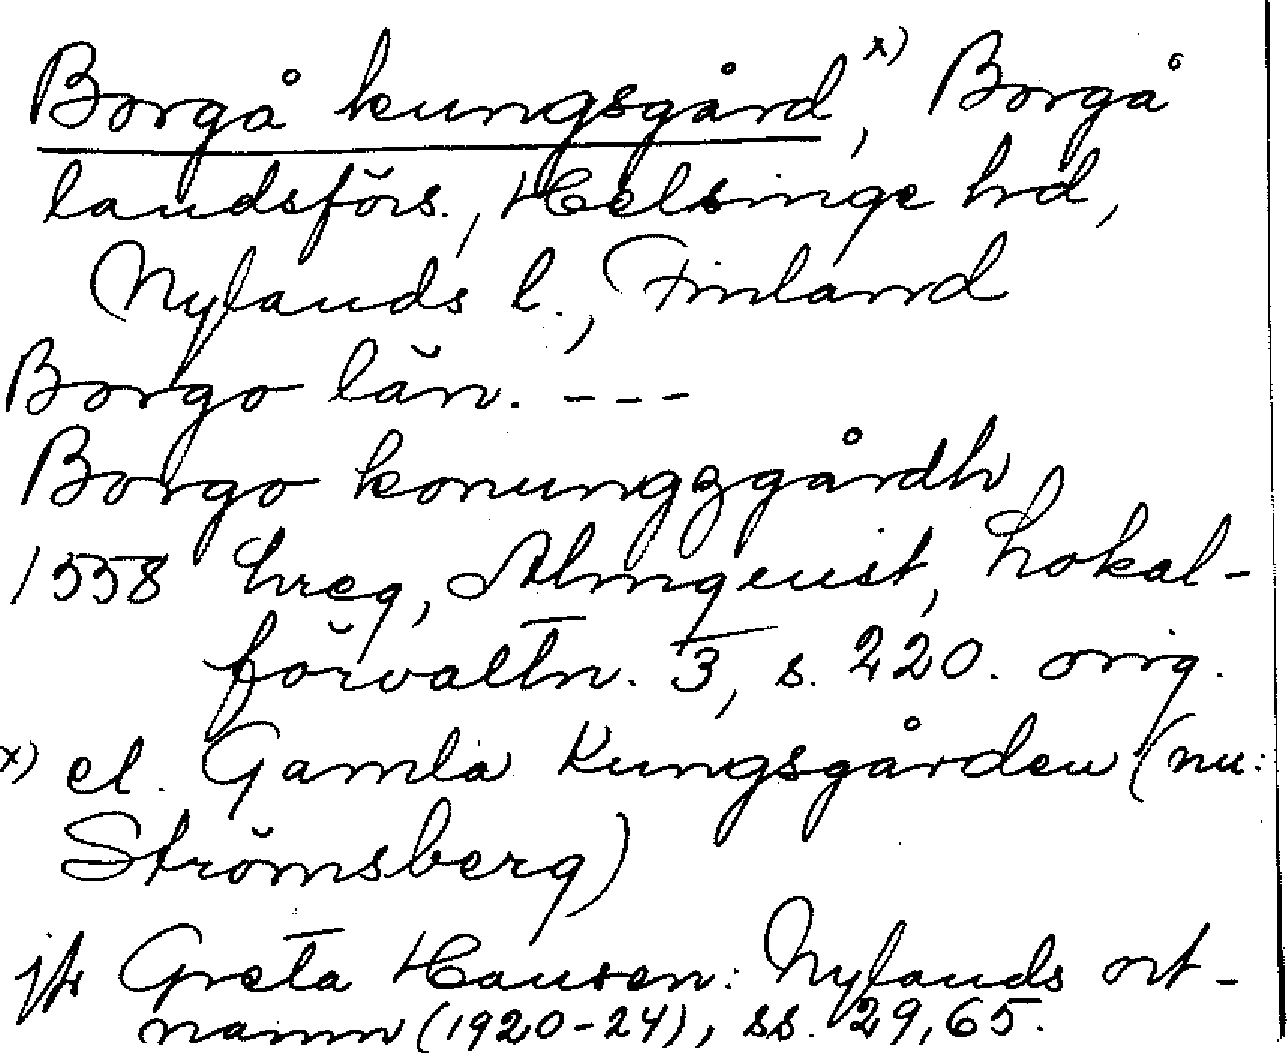 Borgå kungsgård, x) Borgå
landsförs., Helsinge hd,
Nylands l., Finland
Borgo län. ---
Borgo konungzgårdh
1558 hreg, Almquist, Lokal-
förvaltn. 3, s. 220. orig.
x) el. Gamla Kungsgården (nu:
Strömsberg)
jfr Greta Hausen: Nylands ort-
namn (1920-24), ss. 29, 65.